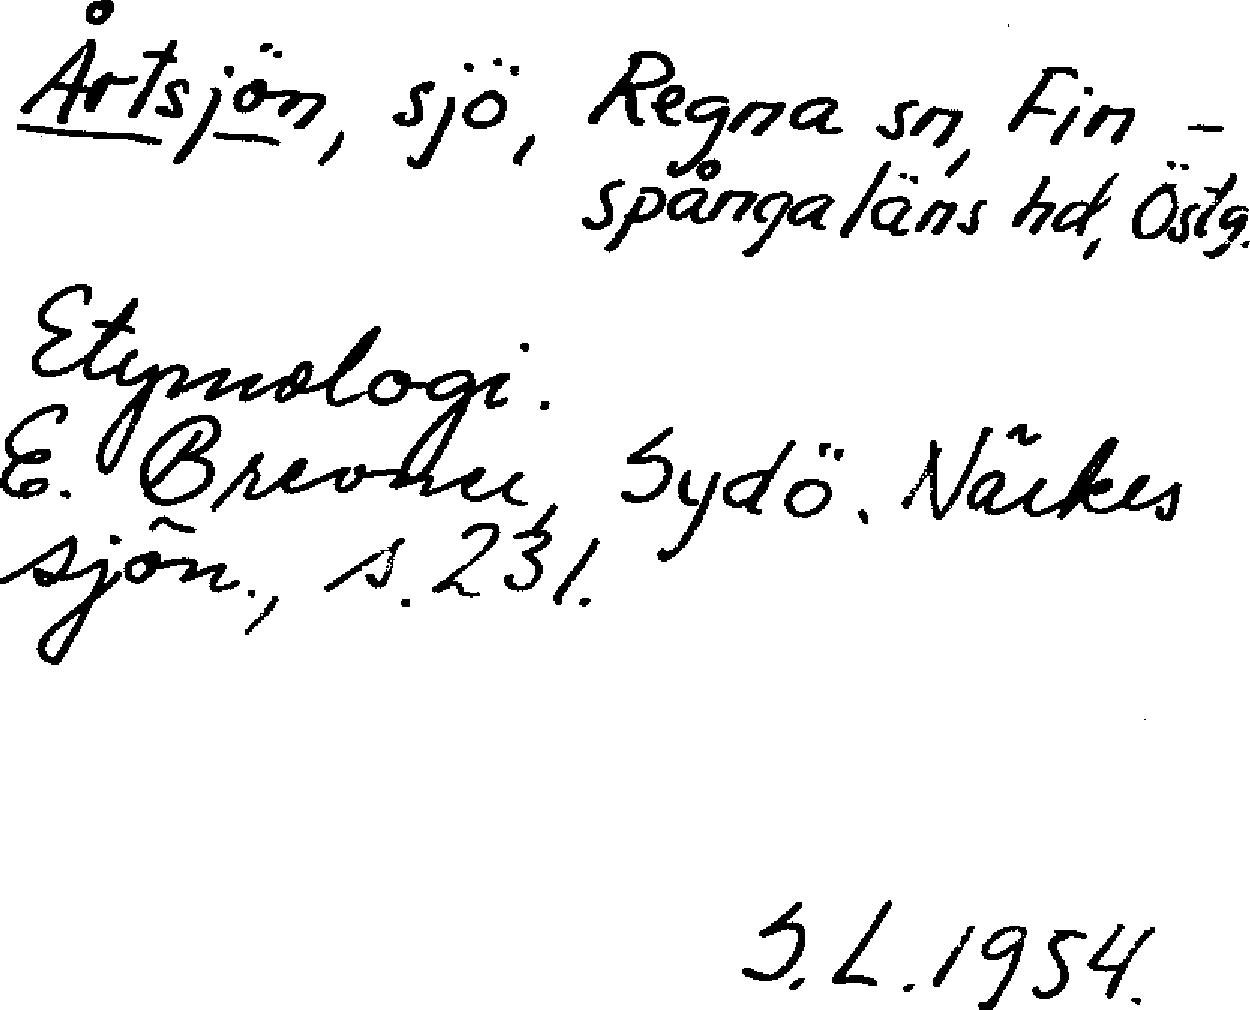 Årtsjön, sjö, Regna sn, Fin-
spångaläns hd, Östg.
Etymologi.
E. Brevner, Sydö. Närkes
sjön., s. 231.
S. L. 1954.